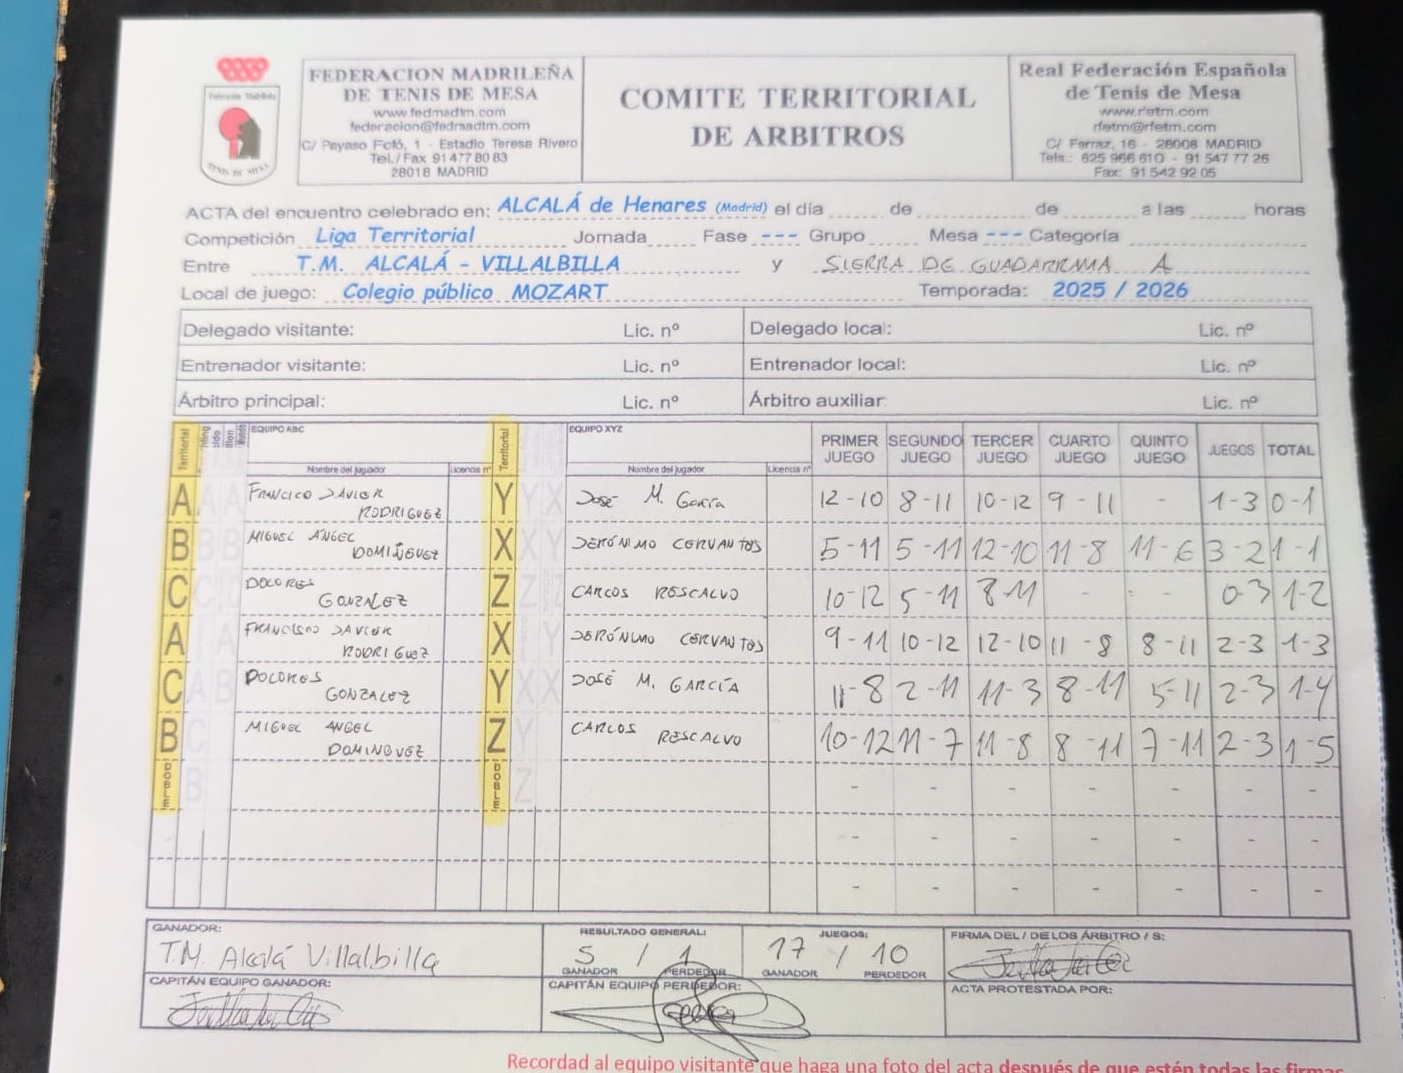 FEDERACION MADRILEÑA
DE TENIS DE MESA
www.fedmadtm.com
federacion@fedmadtm.com
C/ Payaso Fofó, 1 - Estadio Teresa Rivero
Tel./Fax 91 477 80 83
28018 MADRID
COMITE TERRITORIAL
DE ARBITROS
Real Federación Española
de Tenis de Mesa
www.rfetm.com
rfetm@rfetm.com
C/ Ferraz, 16 - 28008 MADRID
Tels.: 625 966 610 - 91 547 77 26
Fax: 91 542 92 05
TENIS DE MESA
ACTA del encuentro celebrado en: ALCALÁ de Henares (Madrid) el día de de a las horas
Competición Liga Territorial Jornada Fase --- Grupo Mesa --- Categoría
Entre T.M. ALCALÁ - VILLALBILLA y SIERRA DE GUADARRAMA A
Local de juego: Colegio público MOZART Temporada: 2025 / 2026
Delegado visitante: Lic. nº Delegado local: Lic. nº
Entrenador visitante: Lic. nº Entrenador local: Lic. nº
Árbitro principal: Lic. nº Árbitro auxiliar: Lic. nº
Territorial EQUIPO ABC Territorial EQUIPO XYZ PRIMER JUEGO SEGUNDO JUEGO TERCER JUEGO CUARTO JUEGO QUINTO JUEGO JUEGOS TOTAL
Nombre del jugador Licencia nº Nombre del jugador Licencia nº
A FRANCICO JAVIER RODRIGUEZ Y JOSÉ M. García 12-10 8-11 10-12 9-11 - 1-3 0-1
B MIGUEL ÁNGEL DOMINGUEZ X JERÓNIMO CERVANTOS 5-11 5-11 12-10 11-8 11-6 3-2 1-1
C DOLORES GONZALEZ Z CARLOS RESCALVO 10-12 5-11 8-11 - - 0-3 1-2
A FRANCISCO JAVIER RODRIGUEZ X JERÓNIMO CERVANTOS 9-11 10-12 12-10 11-8 8-11 2-3 1-3
C DOLORES GONZALEZ Y JOSÉ M. GARCÍA 11-8 2-11 11-3 8-11 5-11 2-3 1-4
B MIGUEL ANGEL DOMINGUEZ Z CARLOS RESCALVO 10-12 11-7 11-8 8-11 7-11 2-3 1-5
DOBLE DOBLE - - - - - - -
- - - - - - -
- - - - - - -
GANADOR: RESULTADO GENERAL: JUEGOS: FIRMA DEL / DE LOS ÁRBITRO / S:
T.M. Alcalá Villalbilla 5 / 1 17 / 10
GANADOR PERDEDOR GANADOR PERDEDOR
CAPITÁN EQUIPO GANADOR: CAPITÁN EQUIPO PERDEDOR: ACTA PROTESTADA POR:
Recordad al equipo visitante que haga una foto del acta después de que estén todas las firmas